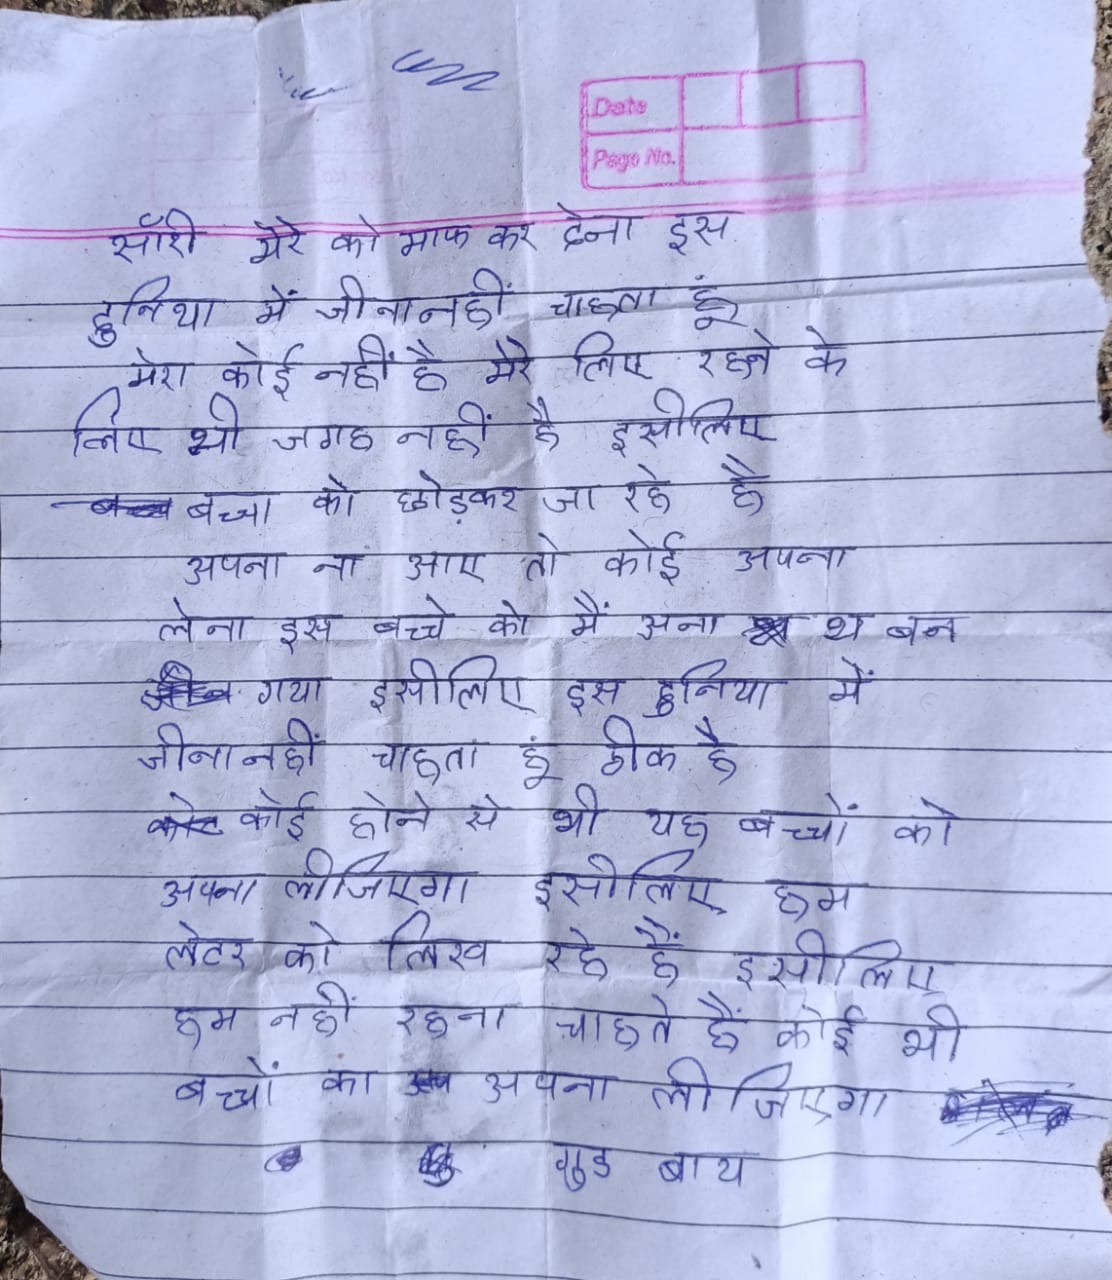 Date
Page No.
सॉरी मेरे को माफ कर देना इस
दुनिया में जीना नहीं चाहता हूं
मेरा कोई नहीं है मेरे लिए रहने के
लिए भी जगह नहीं है इसीलिए
बच्चा को छोड़कर जा रहे है
अपना ना आए तो कोई अपना
लेना इस बच्चे को मैं अना थ बन
गया इसीलिए इस दुनिया में
जीना नहीं चाहता हूं ठीक है
कोई होने से भी यह बच्चों को
अपना लीजिएगा इसीलिए हम
लेटर को लिख रहे हैं इसीलिए
हम नहीं रहना चाहते हैं कोई भी
बच्चों का अपना लीजिएगा
गुड बाय